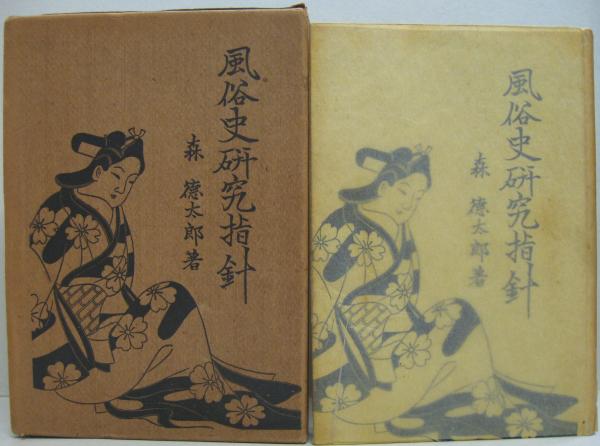 風俗史研究指針
森 德太郎著
風俗史研究指針
森 德太郎著